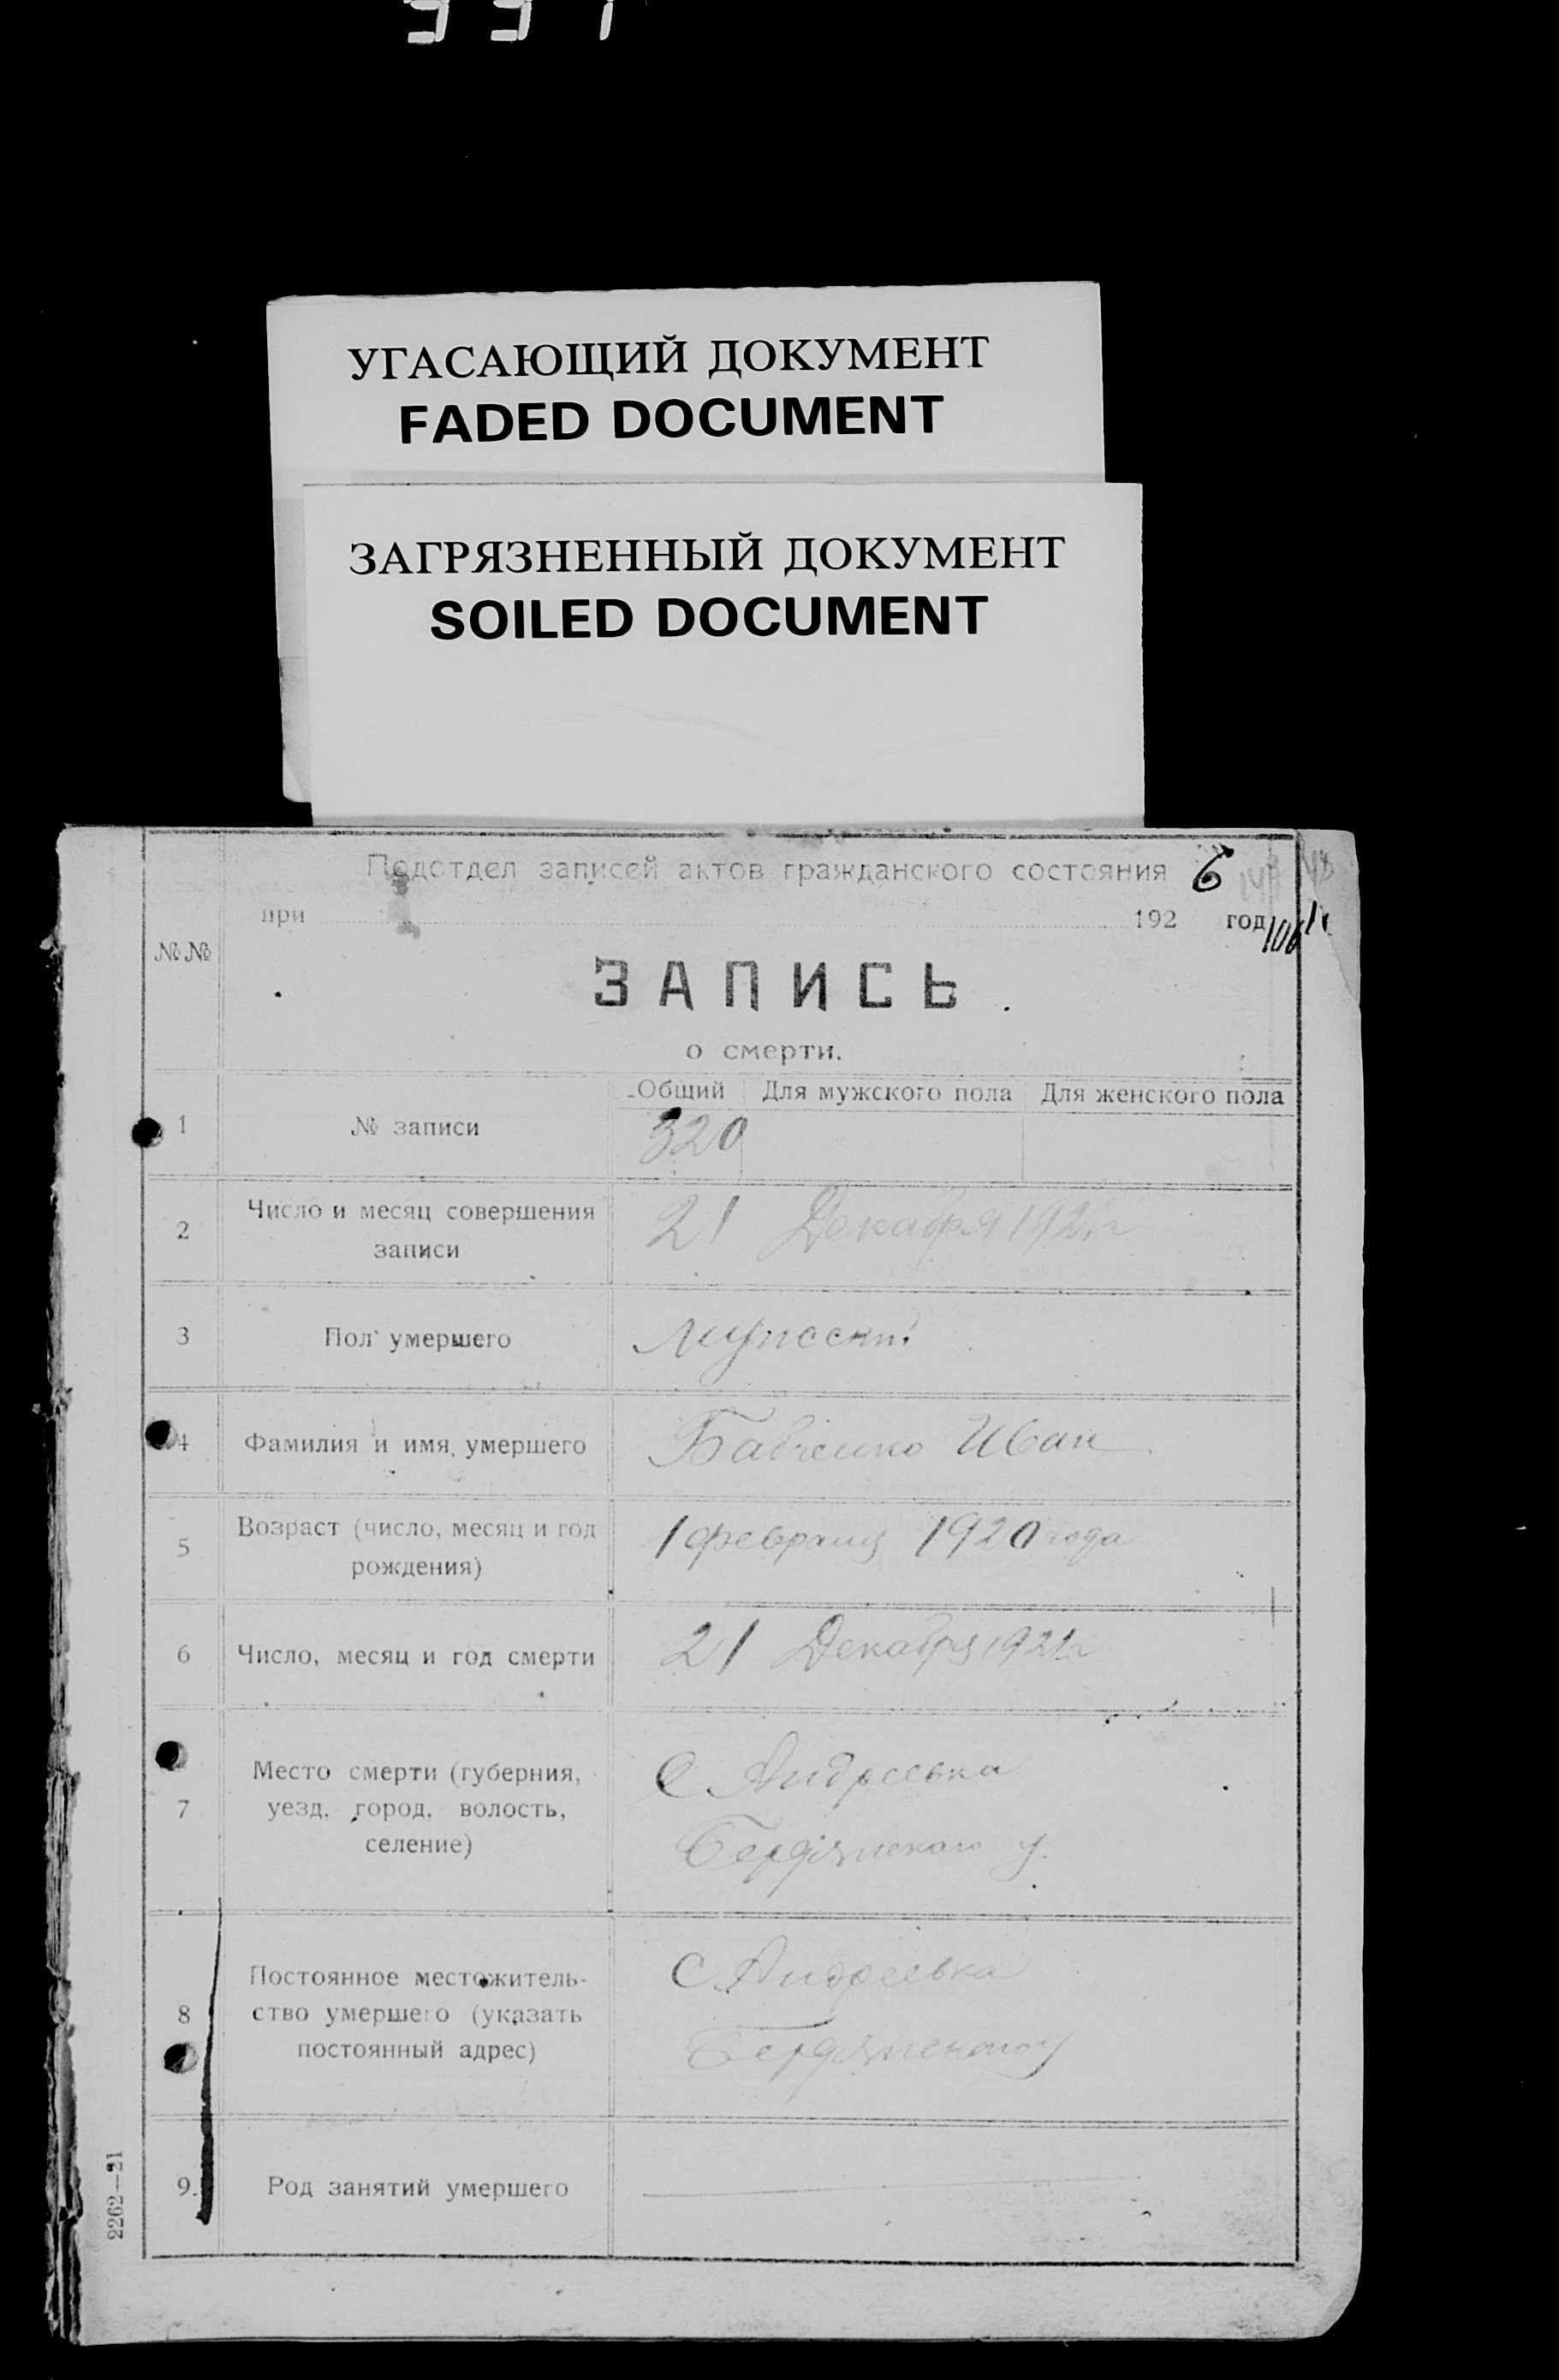 УГАСАЮЩИЙ ДОКУМЕНТ
FADED DOCUMENT
ЗАГРЯЗНЕННЫЙ ДОКУМЕНТ
SOILED DOCUMENT
Подотдел записей актов гражданского состояния 6
при 192 год
№№
ЗАПИСЬ
о смерти.
Общий Для мужского пола Для женского пола
1 № записи 320
2 Число и месяц совершения
записи
21 Декабря 1921г
3 Пол умершего
4 Фамилия и имя умершего Бабченко Иван
5 Возраст (число, месяц и год
рождения)
1 февраля 1920 года
6 Число, месяц и год смерти 21 Декабря 1921г
7 Место смерти (губерния,
уезд, город, волость,
селение)
С Андреевка
Бердянского у.
8 Постоянное местожитель-
ство умершего (указать
постоянный адрес)
С Андреевка
Бердянского у
9. Род занятий умершего
2262—21